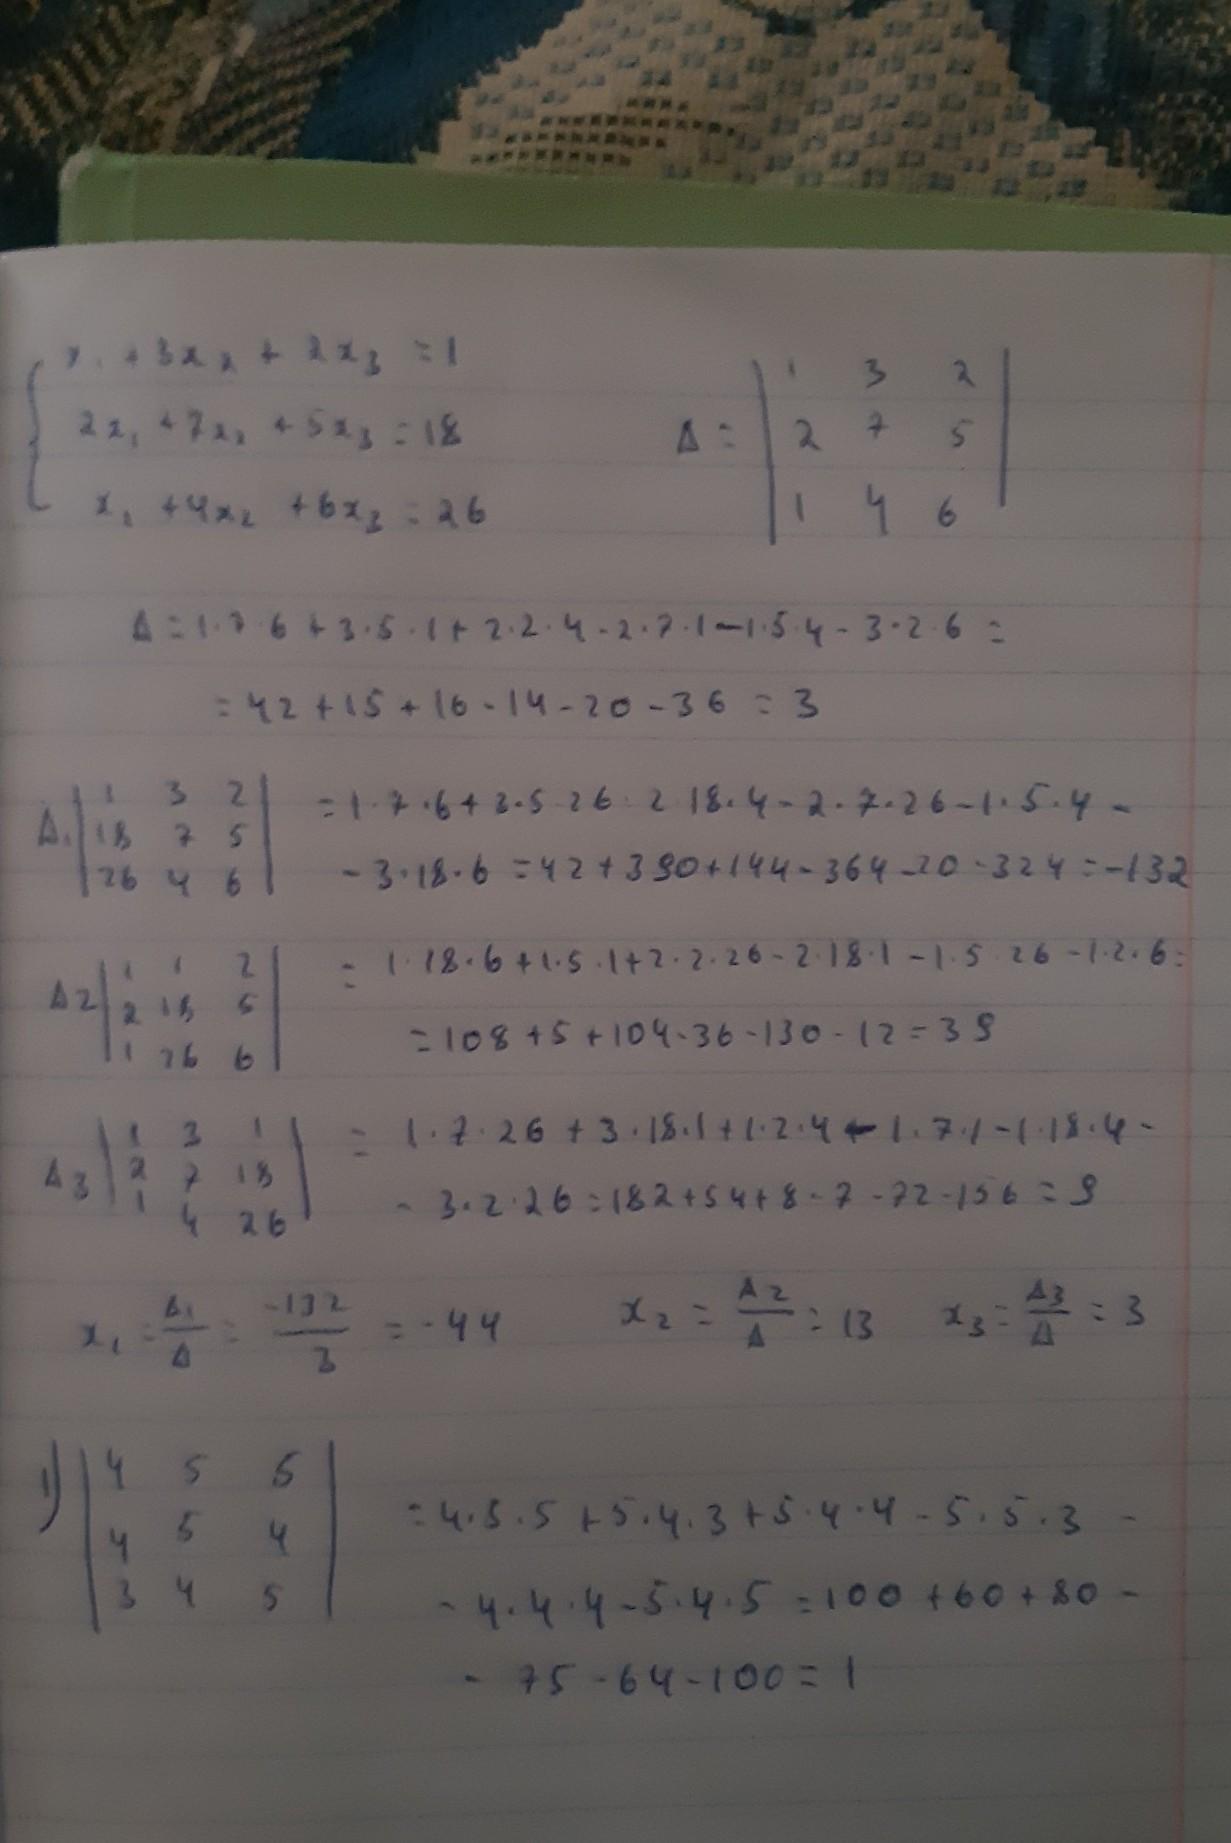 x₁ + 3x₂ + 2x₃ = 1
2x₁ + 7x₂ + 5x₃ = 18
x₁ + 4x₂ + 6x₃ = 26
Δ = | 1 3 2 |
| 2 7 5 |
| 1 4 6 |
Δ = 1·7·6 + 3·5·1 + 2·2·4 - 2·7·1 - 1·5·4 - 3·2·6 =
= 42 + 15 + 16 - 14 - 20 - 36 = 3
Δ₁ | 1 3 2 | = 1·7·6 + 3·5·26 · 2·18·4 - 2·7·26 - 1·5·4 -
| 18 7 5 |
| 26 4 6 | - 3·18·6 = 42 + 390 + 144 - 364 - 20 - 324 = -132
Δ2 | 1 1 2 | = 1·18·6 + 1·5·1 + 2·2·26 - 2·18·1 - 1·5·26 - 1·2·6 =
| 2 18 5 |
| 1 26 6 | = 108 + 5 + 104 - 36 - 130 - 12 = 39
Δ3 | 1 3 1 | = 1·7·26 + 3·18·1 + 1·2·4 - 1·7·1 - 1·18·4 -
| 2 7 18 |
| 1 4 26 | - 3·2·26 = 182 + 54 + 8 - 7 - 72 - 156 = 9
x₁ = Δ1/Δ = -132/3 = -44 x₂ = Δ2/Δ = 13 x₃ = Δ3/Δ = 3
1) | 4 5 5 | = 4·5·5 + 5·4·3 + 5·4·4 - 5·5·3 -
| 4 5 4 |
| 3 4 5 | - 4·4·4 - 5·4·5 = 100 + 60 + 80 -
- 75 - 64 - 100 = 1